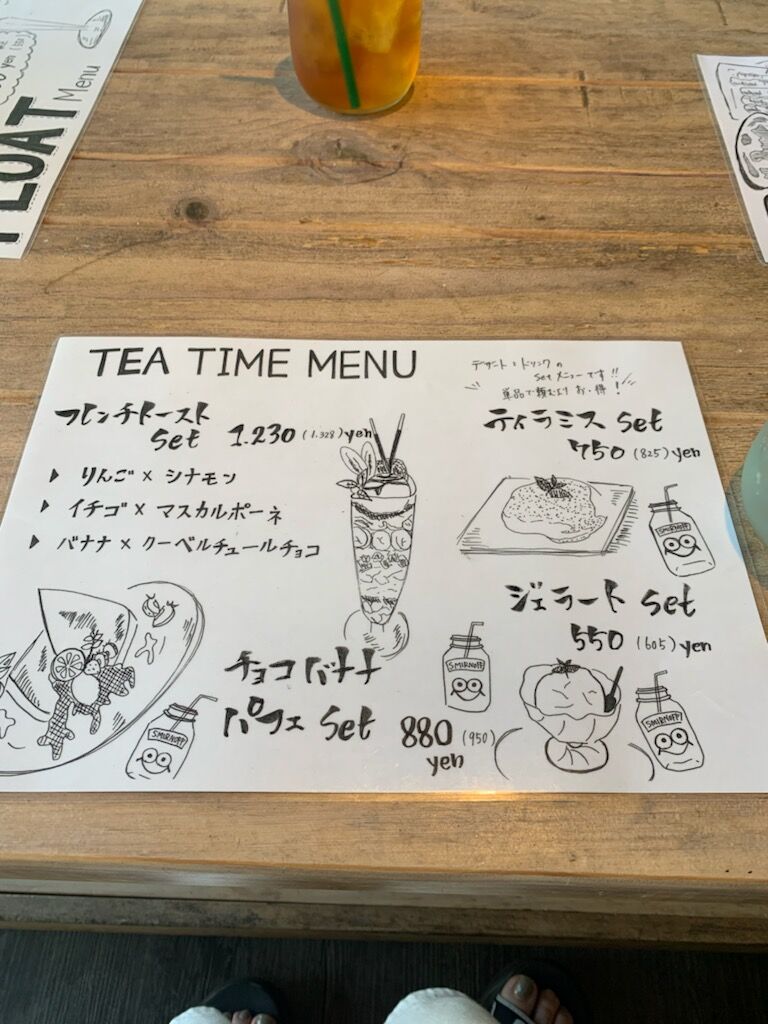 FLOAT Menu
yen
TEA TIME MENU
デザートとドリンクの
setメニューです!!
単品で頼むよりお・得!
フレンチトースト
set 1.230 (1.328) yen
りんご×シナモン
イチゴ×マスカルポーネ
バナナ×クーベルチュールチョコ
ティラミス set
750 (825) yen
SMIRNOFF
ジェラート set
550 (605) yen
チョコバナナ
パフェ set 880 (950)
yen
SMIRNOFF
SMIRNOFF
SMIRNOFF